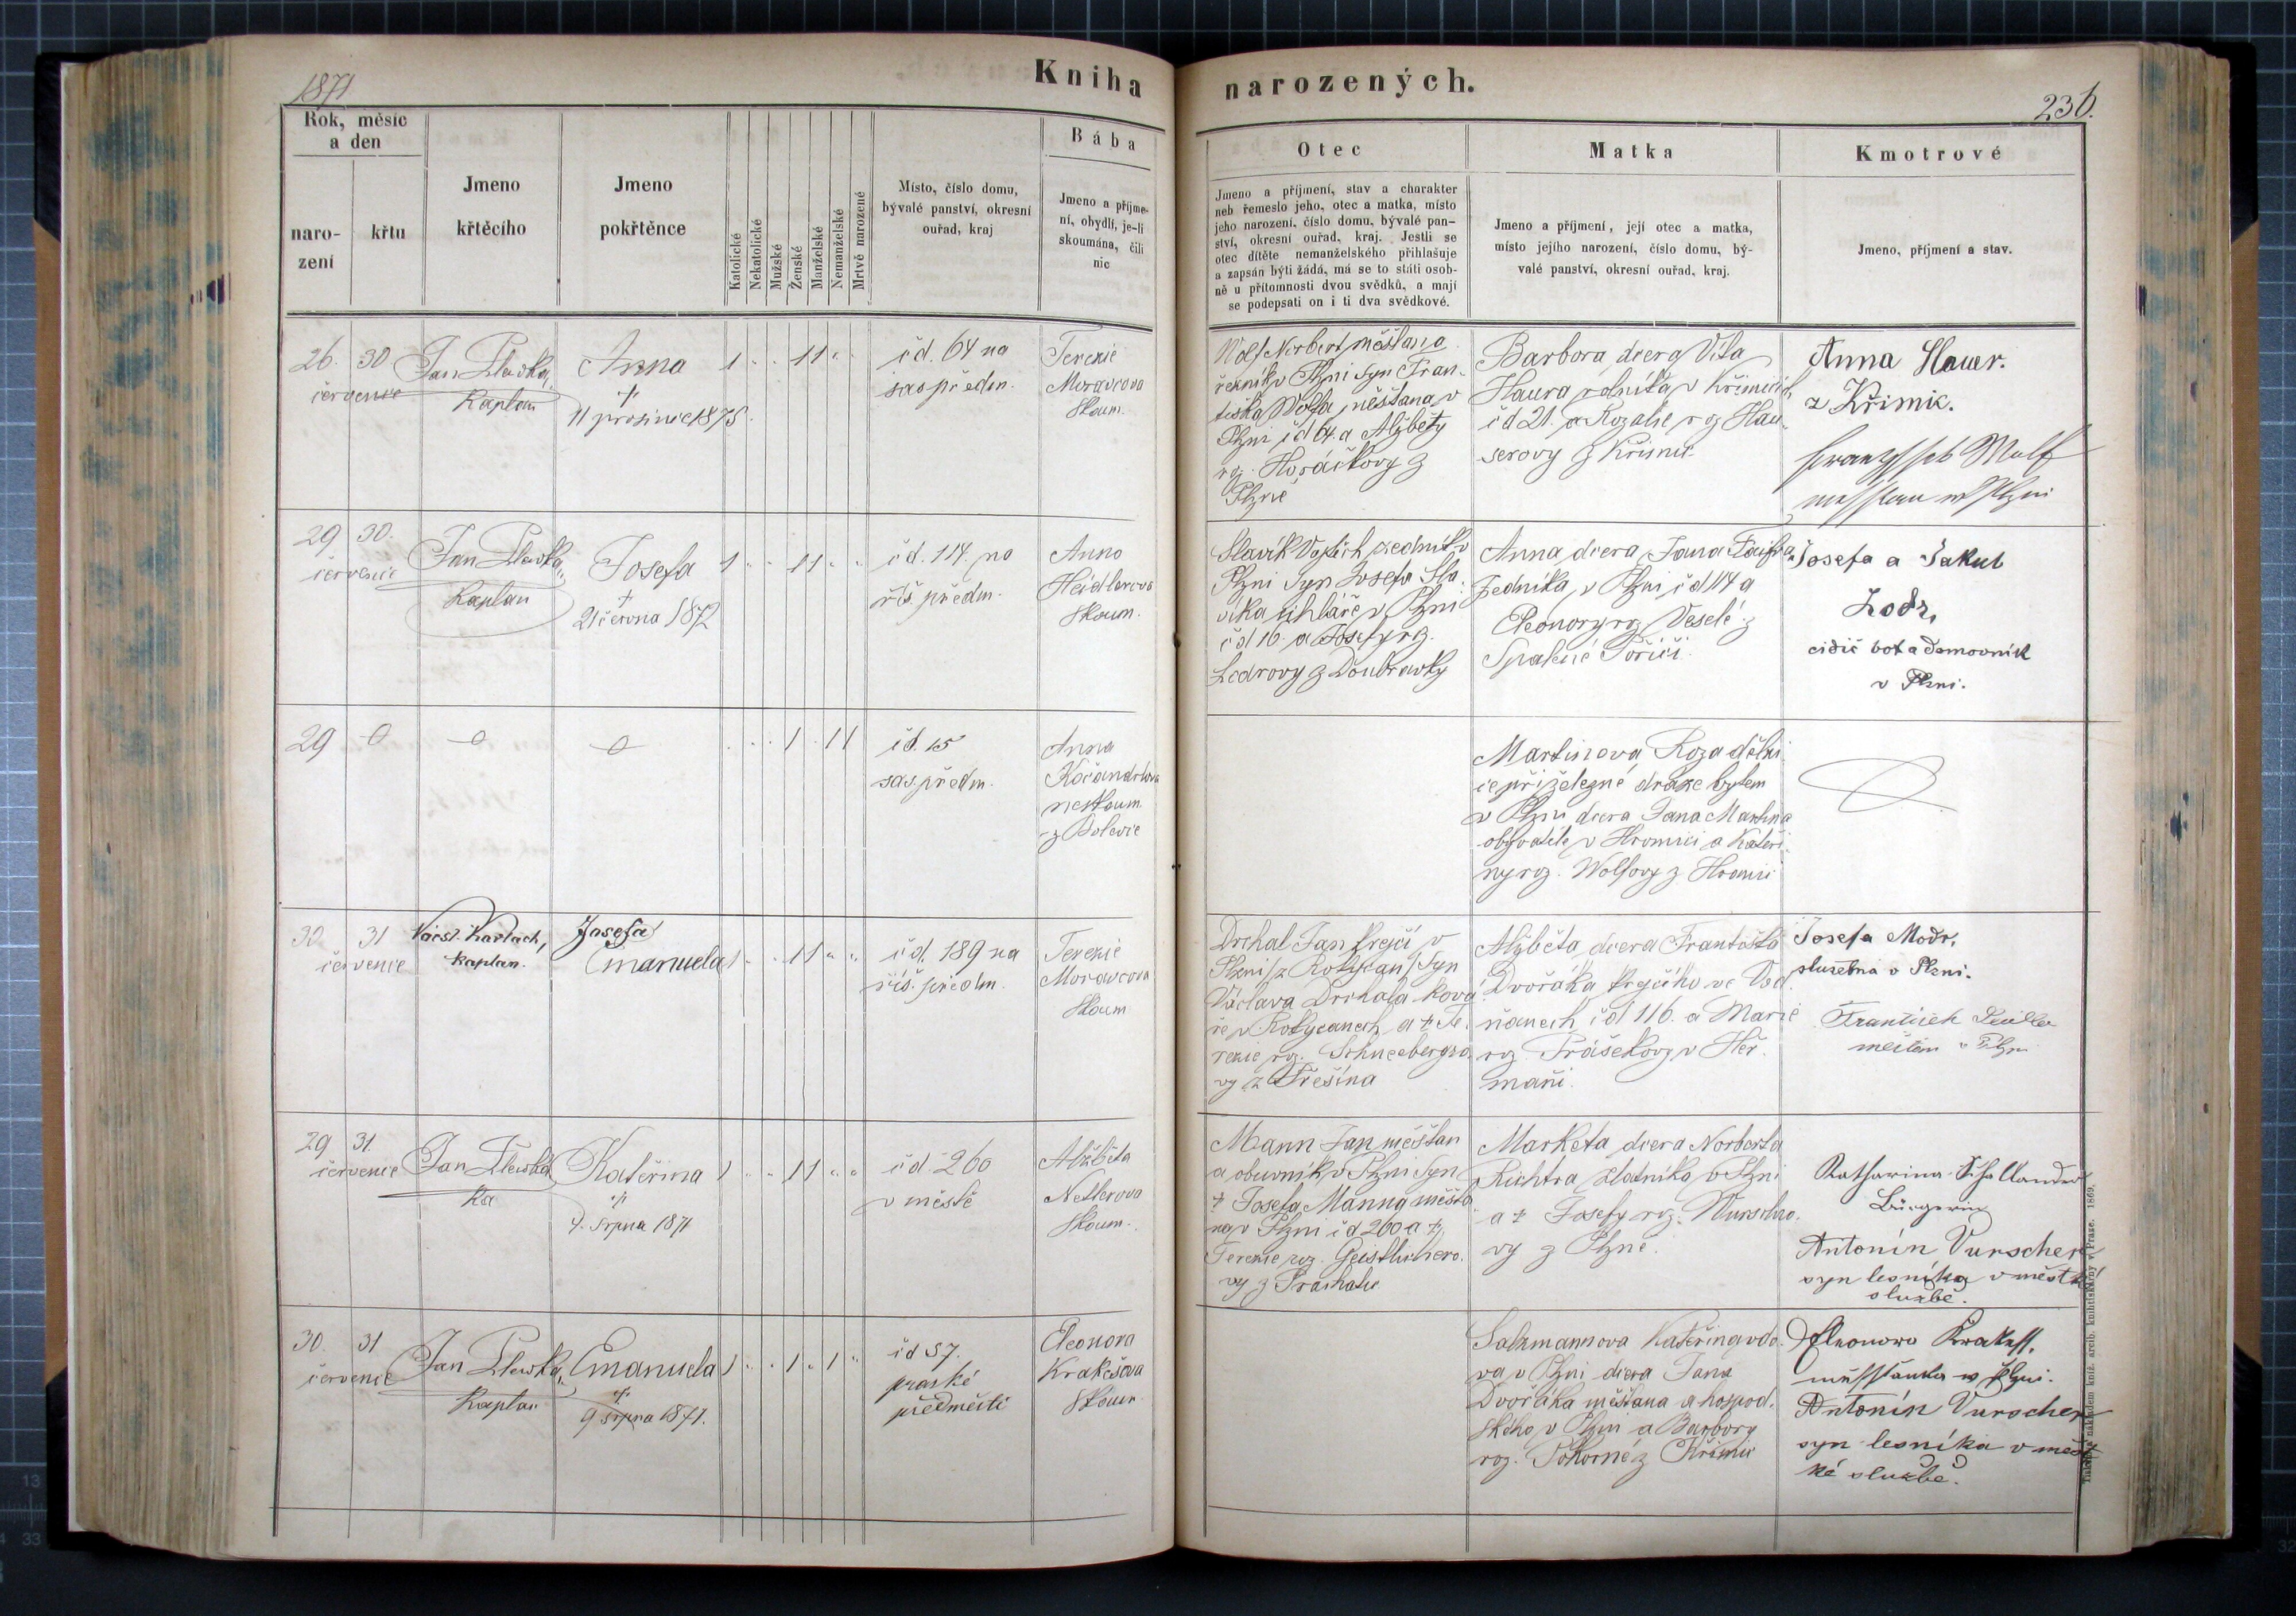 1871
Kniha narozených.
236.
Rok, měsíc
a den
naro-
zení
křtu
Jmeno
křtěcího
Jmeno
pokřtěnce
Katolické
Nekatolické
Mužské
Ženské
Manželské
Nemanželské
Mrtvě narozené
Místo, číslo domu,
bývalé panství, okresní
ouřad, kraj
Bába
Jmeno a příjme-
ní, obydlí, je-li
skoumána, čili
nic
Otec
Jmeno a příjmení, stav a charakter
neb řemeslo jeho, otec a matka, místo
jeho narození, číslo domu, bývalé pan-
ství, okresní ouřad, kraj. Jestli se
otec dítěte nemanželského přihlašuje
a zapsán býti žádá, má se to státi osob-
ně u přítomnosti dvou svědků, a mají
se podepsati on i ti dva svědkové.
Matka
Jmeno a příjmení, její otec a matka,
místo jejího narození, číslo domu, bý-
valé panství, okresní ouřad, kraj.
Kmotrové
Jmeno, příjmení a stav.
26. 30
července
Jan Plewka,
Kaplan
Anna
†
11 prosince 1875.
1 1 1
čd. 64 na
sas předm.
Terezie
Moravcova
skoum.
Wolf Norbert měšťan a
řezník v Plzni syn Fran-
tiska Wolfa, měšťana v
Plzni čd 64 a Alžběty
roz. Horáčkovy z
Plzně
Barbora dcera Víta
Haura rolníka v Křimicích
čd 21. a Rozalie roz Hau-
serovy z Křimic
Anna Hauer.
z Křimic.
29 30.
července
Jan Plewka,
Kaplan
Josefa
†
21 června 1872
1 1 1
čd. 114 na
říš. předm.
Anna
Heidlerova
skoum.
Slavík Vojtěch zedník v
Plzni syn Josefa Sla-
víka cihláře v Plzni
čd 16. a Josefy rz.
Ledrovy z Doubravky
Anna dcera Jana
zedníka v Plzni čd 114 a
Eleonory rz Veselé z
Spálené Poříčí.
Josefa a Jakub
cidič bot a domovník
v Plzni.
29
1 1 1
čd. 15
sas. předm.
Anna
Kočandrlova
neskoum
z Bolevce
Martinova Roza dělni-
ce při železné dráze bytem
v Plzni dcera Jana Martina
obyvatele v Hromici a Kateři-
ny roz. Wolfovy z Hromic
30 31
července
Václ. Karlach,
kaplan.
Josefa
Emanuela
1 1 1
čd. 189 na
říš. předm.
Terezie
Moravcova
skoum
Drchal Jan krejčí v
Plzni /z Rokycan/ syn
Václava Drchala ková-
ře v Rokycanech a † Te-
rezie roz. Schneebergro-
vy z Těšína
Alžběta dcera Františka
Dvořáka krejčího ve Vod-
ňanech čd 116. a Marie
roz. Práškovy v Heř-
mani.
Josefa Modr,
služebná v Plzni.
František
měšťan v Plzni
29 31.
července
Jan Plewka
Ka
Kateřina
†
4. srpna 1871
1 1 1
čd 260
v městě
Alžběta
Netlerova
skoum.
Mann Jan měšťan
a obuvník v Plzni syn
† Josefa Manna měšťa-
na v Plzni čd 260 a †
Terezie roz. Geistluhero-
vy z Prachatic
Marketa dcera Norberta
Richtra zlatníka v Plzni
a † Josefy roz. Wurschro-
vy z Plzně.
Katharina Schallander
Bürgerin
Antonín Vurscher
syn lesníka v městké
službě.
30. 31
července
Jan Plewka,
Kaplan
Emanuela
†
9 srpna 1871.
1 1 1
čd 57.
pražské
předměstí
Eleonora
Krakešova
skoum
Salzmannova Kateřina vdo-
va v Plzni dcera Jana
Dvořáka měšťana a hospod-
ského v Plzni a Barbory
roz. Pokorné z Křimic
Eleonora
Antonín Vurscher
syn lesníka v měst-
ké službě.